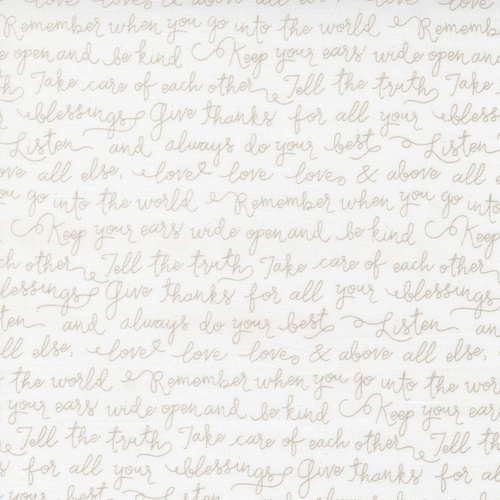 love love love
Remember when you go into the world Rememb
e open and be kind Keep your ears wide open and
th Take care of each other Tell the truth Take
r blessings Give thanks for all your bless
Listen and always do your best Listen
ove all else, love love love & above all e
ou go into the world Remember when you go into
Keep your ears wide open and be kind Keep
ch other Tell the truth Take care of each other
lessings Give thanks for all your blessings
ten and always do your best Listen an
ll else, love love love & above all else,
the world Remember when you go into the wor
your ears wide open and be kind Keep your ears
Tell the truth Take care of each other Tell th
s for all your blessings Give thanks for
your best Listen and always do your